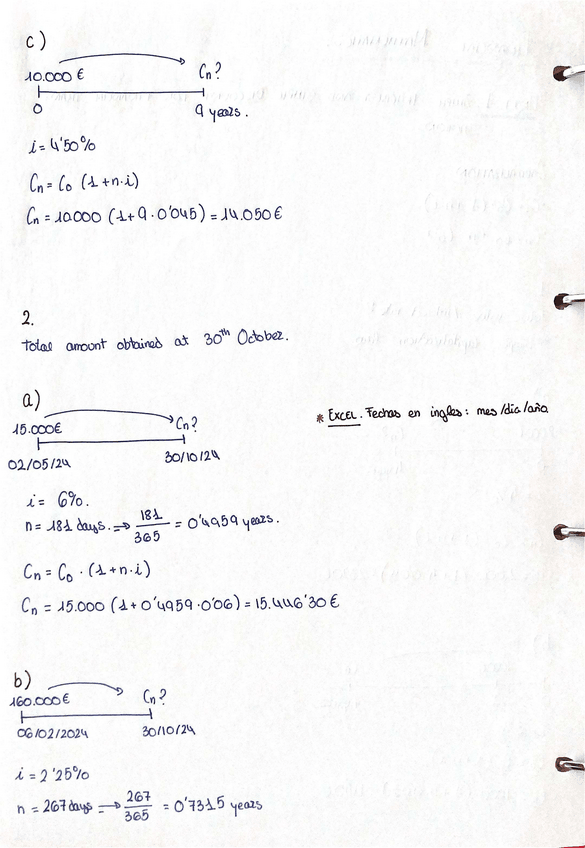 c)
10.000 € Cn?
0 9 years.
i = 4'50%
Cn = C0 (1+n·i)
Cn = 10.000 (1+9·0'045) = 14.050 €
2.
Total amount obtained at 30th October.
a)
15.000€ Cn?
* EXCEL. Fechas en ingles: mes/dia/año
02/05/24 30/10/24
i = 6%.
n = 181 days. ⇒ 181/365 = 0'4959 years.
Cn = C0 · (1+n·i)
Cn = 15.000 (1+0'4959·0'06) = 15.446'30 €
b)
160.000€ Cn?
06/02/2024 30/10/24
i = 2'25%
n = 267 days → 267/365 = 0'7315 years